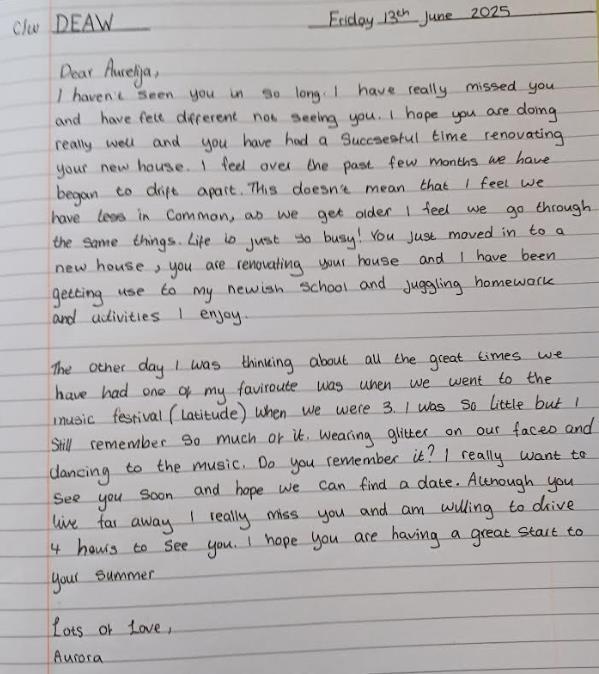 C/w DEAW
Friday 13th June 2025
Dear Aurelija,
I haven't seen you in so long. I have really missed you
and have felt different not seeing you. I hope you are doing
really well and you have had a Succsesful time renovating
your new house. I feel over the past few months we have
began to drift apart. This doesn't mean that I feel we
have less in Common, as we get older I feel we go through
the same things. Life is just so busy! You just moved in to a
new house, you are renovating your house and I have been
getting use to my newish school and juggling homework
and activities I enjoy.
The other day I was thinking about all the great times we
have had one of my faviroute was when we went to the
music festival (Latitude) when we were 3. I was so little but I
Still remember so much of it. Wearing glitter on our faces and
dancing to the music. Do you remember it? I really want to
see you soon and hope we can find a date. Although you
live far away I really miss you and am willing to drive
4 hours to see you. I hope you are having a great start to
your summer
Lots of Love,
Aurora